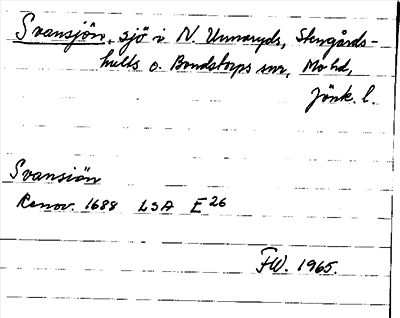 Svansjön, sjö i N. Unnaryds, Stengårds-
hults o. Bondstorps snr, Mo hd,
Jönk. l.
Svansiön
Renov. 1688 LSA E 26
FW. 1965.